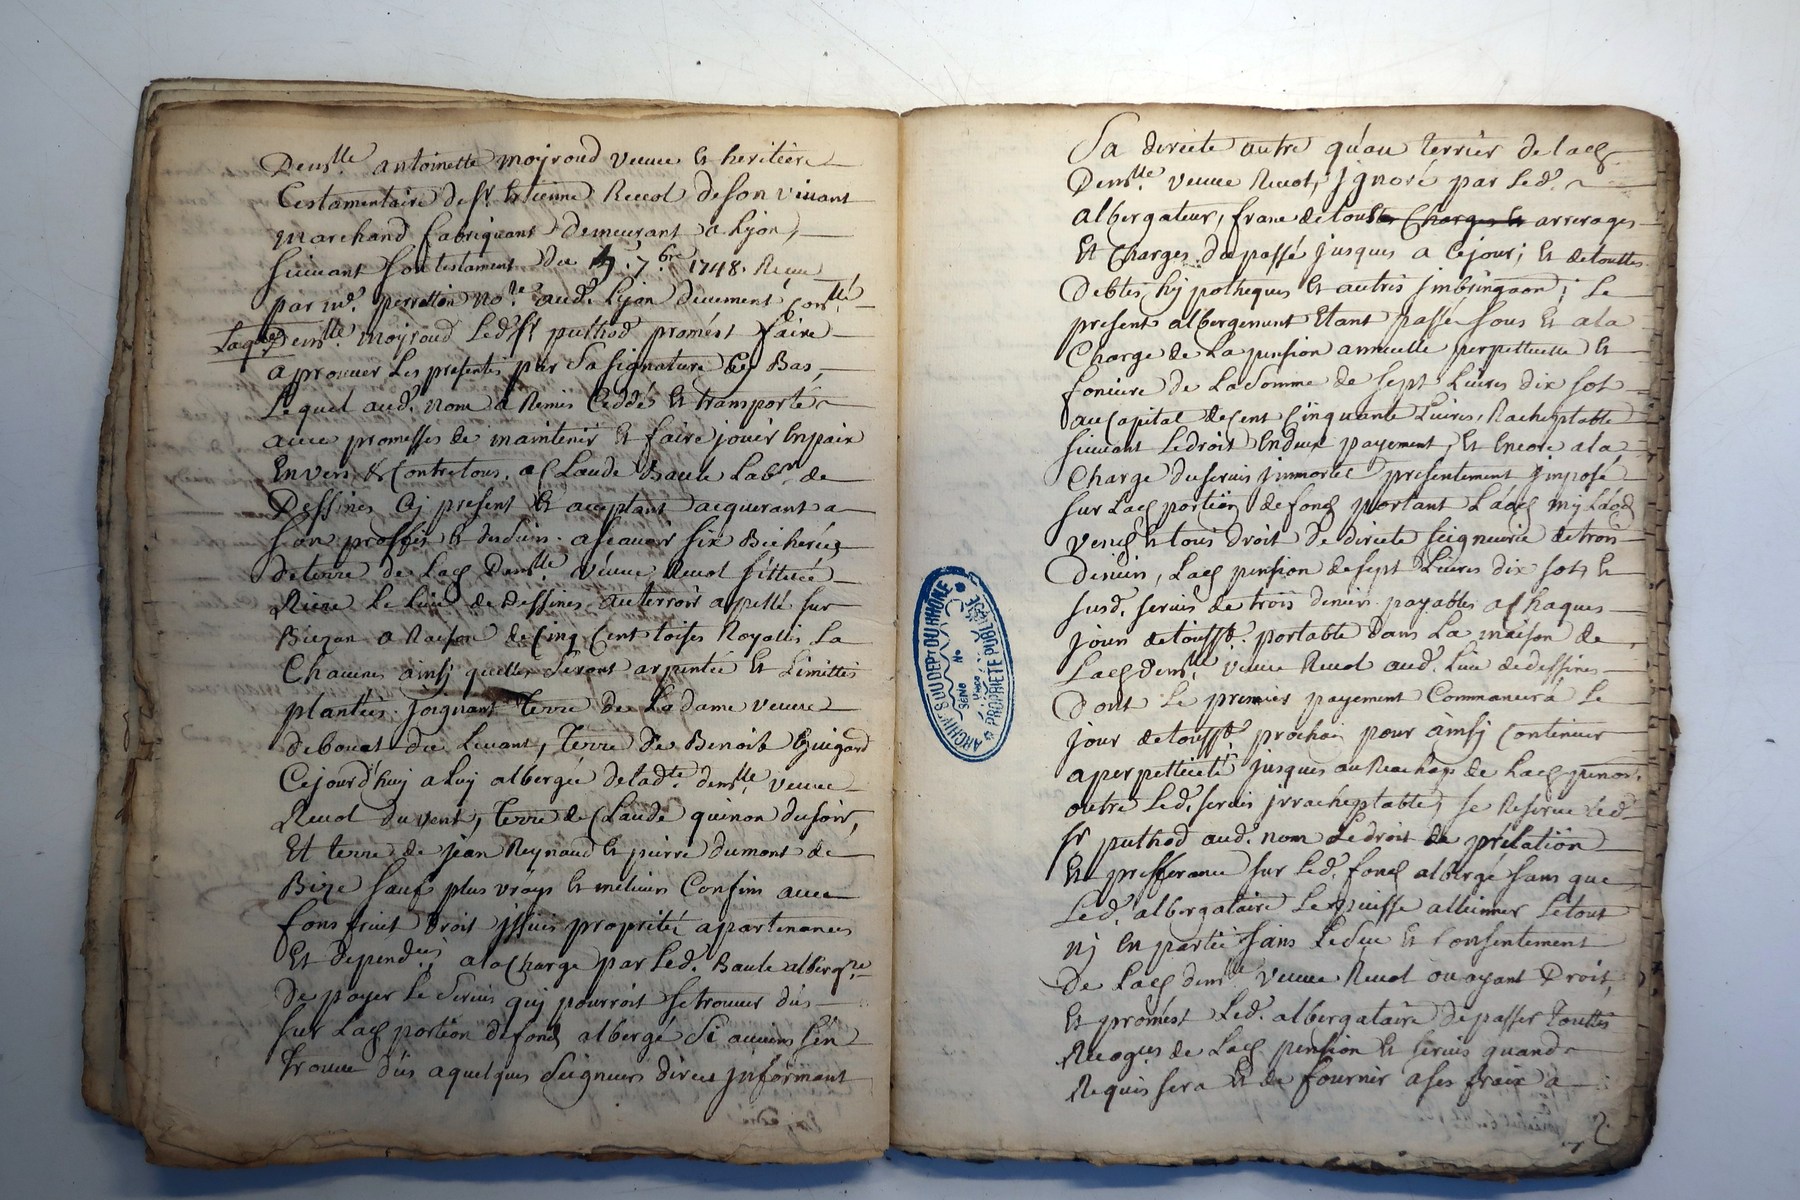 Dem.lle antoinette moyroud veuve et heritiere
testamentaire de sr. Estienne Revol de son vivant
marchand fabriquant demeurant a Lyon,
suivant son testament du 7.bre 1748. Receu
par me. perrottin no.re aud. Lyon duement con.llé
Laq. Dem.lle moyroud led. sr puthod promest faire
aprouver les presentes par sa signature Cy Bas,
Lequel aud. nom a Remis Ceddé et transporté
avec promesses de maintenir et faire jouir En paix
Envers & Contre tous. a Claude Baule Lab.r de
Dessines Cy present et acceptant acquerant a
son proffit et des siens. ascavoir six Bicherées
de terre de Lad. Dem.lle veuve Revol sittuée
Riere Le Lieu de Dessines au terroir appellé sur
Biezan a Raison de Cinq Cent toises Royalles La
Chacune ainsy quelles seront arpentée et Limittes
plantées. joignant terre de La dame veuve
debouat du Levant, terre de Benoist Guigard
Cejourd'huy a luy albergée de lad.te dem.lle veuve
Revol du vent, terre de Claude quinon du soir,
Et terre de jean Reynaud et pierre dumont de
Bize sauf plus vrays et meilieurs Confins avec
fons fruit droit jssues proprietés apartenances
Et depend.ces a la Charge par Led. Baule alberg.re
de payer le servis quj pourroit se trouver dus
sur Lad. portion de fond albergé si aucuns s'en
trouve dus a quelques seigneurs direct jnformant
Sa directe autre qu'au terrier de lad.
Dem.lle veuve Revol, jgnoré par Led.
albergateur, franc de tous Charges et arrerages
Et Charges du passé jusques a Cejour; et de touttes
Debtes, hypotheques et autres jmbringaon; Le
present albergement Etant passé sous et a la
Charge de La pension annuelle perpettuelle et
fonciere de La somme de sept Livres dix sols
au Capital de Cent Cinquante Livres, Racheptable
suivant Le droit En deux payement, et Encore a la
Charge du servis jmmortel presentement jmposé
sur Lad. portion de fond portant Laods my Laods
vends et tous droit de directe seigneurie de trois
deniers, Lad. pension de sept Livres dix sols et
susd. servis de trois deniers payables a Chaques
jours de tousst. portable dans La maison de
Lad. Dem.lle veuve Revol aud. Lieu de dessines
Dont Le premier payement Commancera Le
jour de tousst. prochain pour ainsy Continuer
a perpettuité jusques au Rachapt de Lad. pension.
outre Led. servis jrracheptable, se Reserve Led.
sr puthod aud. nom Le droit de prélation
Et pressferance sur Led. fond albergé sans que
Led. albergataire Le puisse allienner Le tout
nj En partie sans Le sceu et Consentement
de Lad. dem.lle veuve Revol ou ayant Droit,
Et promest Led. albergataire de passer touttes
Recog.ces de Lad. pension et servis quand
Requis sera Et de fournir a ses fraix a
ARCHIVES DU DEPT DU RHÔNE
PROPRIÉTÉ PUBLIQUE